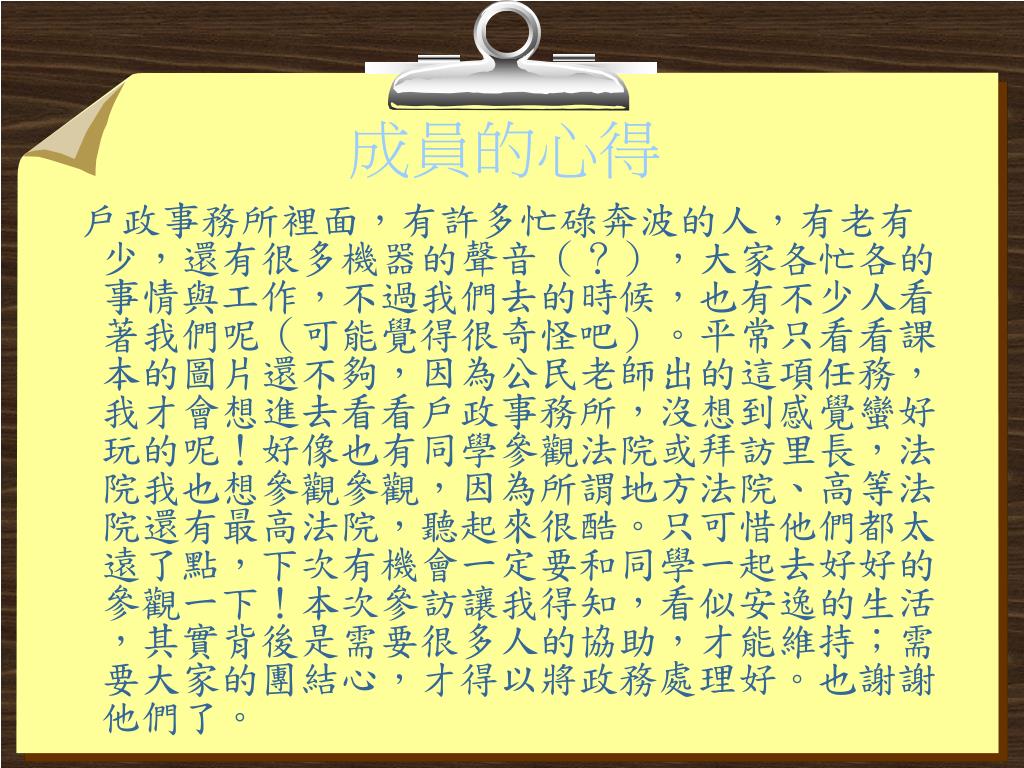 成員的心得
戶政事務所裡面，有許多忙碌奔波的人，有老有
少，還有很多機器的聲音（？），大家各忙各的
事情與工作，不過我們去的時候，也有不少人看
著我們呢（可能覺得很奇怪吧）。平常只看看課
本的圖片還不夠，因為公民老師出的這項任務，
我才會想進去看看戶政事務所，沒想到感覺蠻好
玩的呢！好像也有同學參觀法院或拜訪里長，法
院我也想參觀參觀，因為所謂地方法院、高等法
院還有最高法院，聽起來很酷。只可惜他們都太
遠了點，下次有機會一定要和同學一起去好好的
參觀一下！本次參訪讓我得知，看似安逸的生活
，其實背後是需要很多人的協助，才能維持；需
要大家的團結心，才得以將政務處理好。也謝謝
他們了。